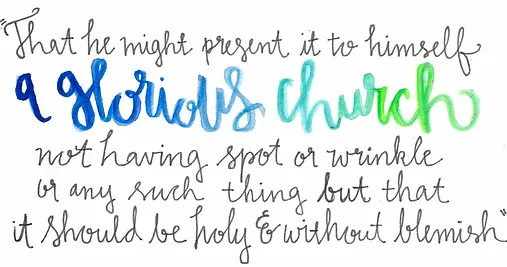 "That he might present it to himself
a glorious church
not having spot or wrinkle
or any such thing but that
it should be holy & without blemish"